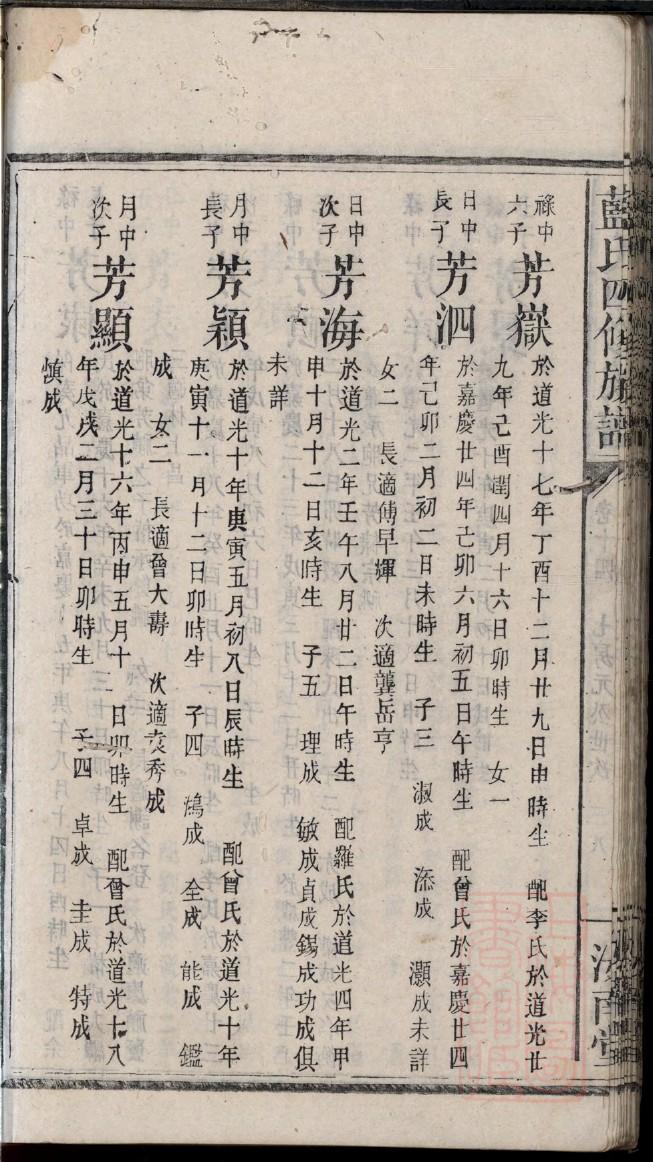 藍氏四修族譜
祿中六子
芳嶽
於道光十七年丁酉十二月廿九日申時生　配李氏於道光廿
九年己酉閏四月十六日卯時生　女一
日中長子
芳泗
於嘉慶廿四年己卯六月初五日午時生　配曾氏於嘉慶廿四
年己卯二月初二日未時生　子三　淑成　添成　灝成未詳
女二　長適傅早煇　次適龔岳亨
日中次子
芳海
於道光二年壬午八月廿二日午時生　配羅氏於道光四年甲
申十月十二日亥時生　子五　理成　敏成貞成錫成功成俱
未詳
月中長子
芳穎
於道光十年庚寅五月初八日辰時生　配曾氏於道光十年
庚寅十一月十二日卯時生　子四　鴻成　全成　能成　鑑
成　女二　長適曾大壽　次適袁秀成
月中次子
芳顯
於道光十六年丙申五月十一日卯時生　配曾氏於道光十八
年戊戌二月三十日卯時生　子四　卓成　圭成　特成
慎成